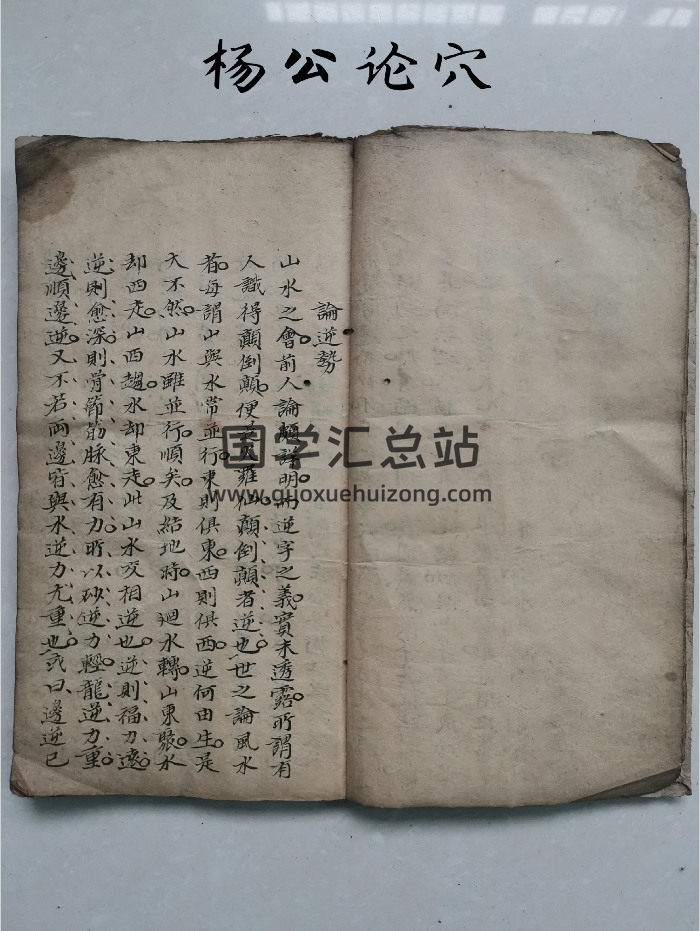 杨公论穴
論逆勢
山水之會前人論頗詳明而逆字之義實未透露所謂有
人識得顛倒顛便是大羅仙顛倒顛者逆也世之論風水
者每謂山與水常並行東則俱東西則俱西逆何由生是
大不然山水雖並行順矣及結地時山迴水轉山東驟水
却西走山西趨水却東走此山水交相逆也逆則福力遠
逆則愈深則骨節筋脉愈有力所以砂逆力輕龍逆力重
邊順邊逆又不若兩邊皆與水逆力尤重也或曰邊逆已
国学汇总站
www.guoxuehuizong.com